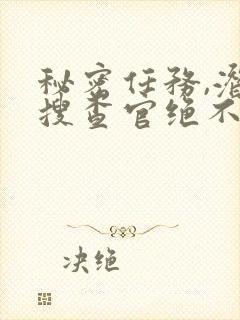 秘密任務,潜
搜查官绝不
决绝